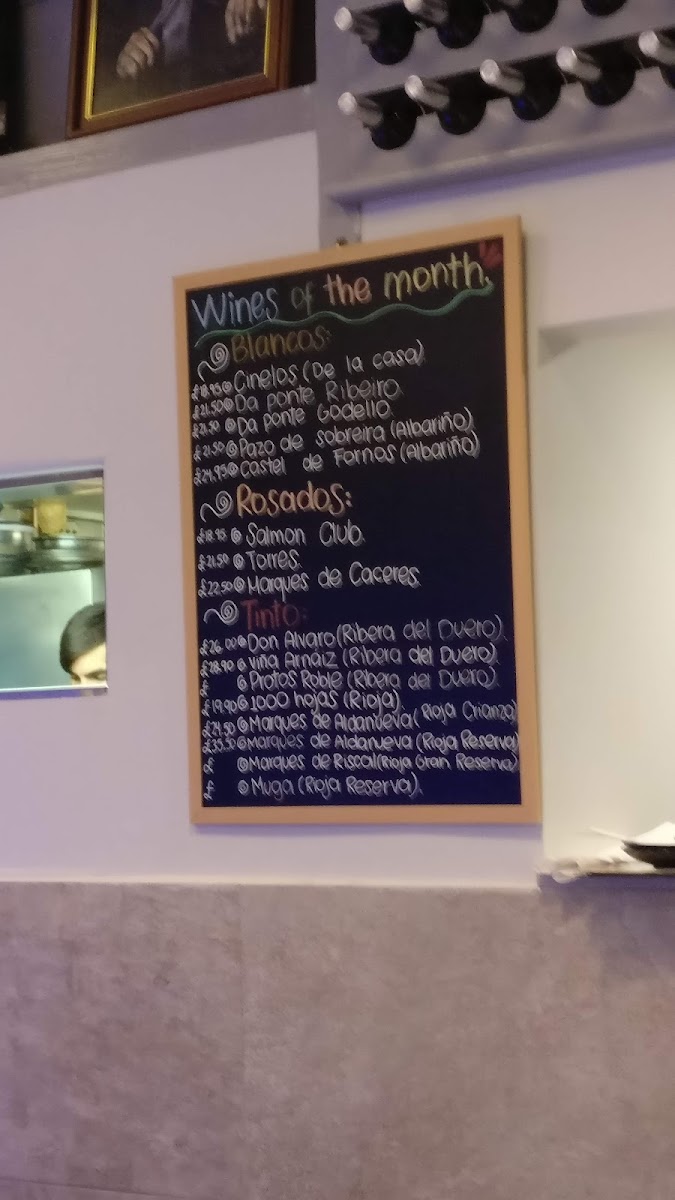 Wines of the month.
Blancos:
£18.95 Cinelos (De la casa)
£21.50 Da ponte Ribeiro.
£21.50 Da ponte Godello.
£21.50 Pazo de sobreira (Albariño)
£24.95 Castel de Fornos (Albariño)
Rosados:
£18.95 Salmon Club.
£21.50 Torres.
£22.50 Marques de Caceres.
Tinto:
£26.00 Don Alvaro (Ribera del Duero).
£28.90 Viña Arnaiz (Ribera del Duero).
£ Protos Roble (Ribera del Duero).
£19.90 1000 hojas (Rioja).
£24.50 Marques de Aldanueva (Rioja Crianza)
£35.50 Marques de Aldanueva (Rioja Reserva)
£ Marques de Riscal (Rioja Gran Reserva)
£ Muga (Rioja Reserva).